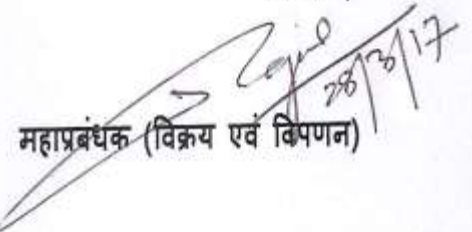 28/3/17
महाप्रबंधक (विक्रय एवं विपणन)